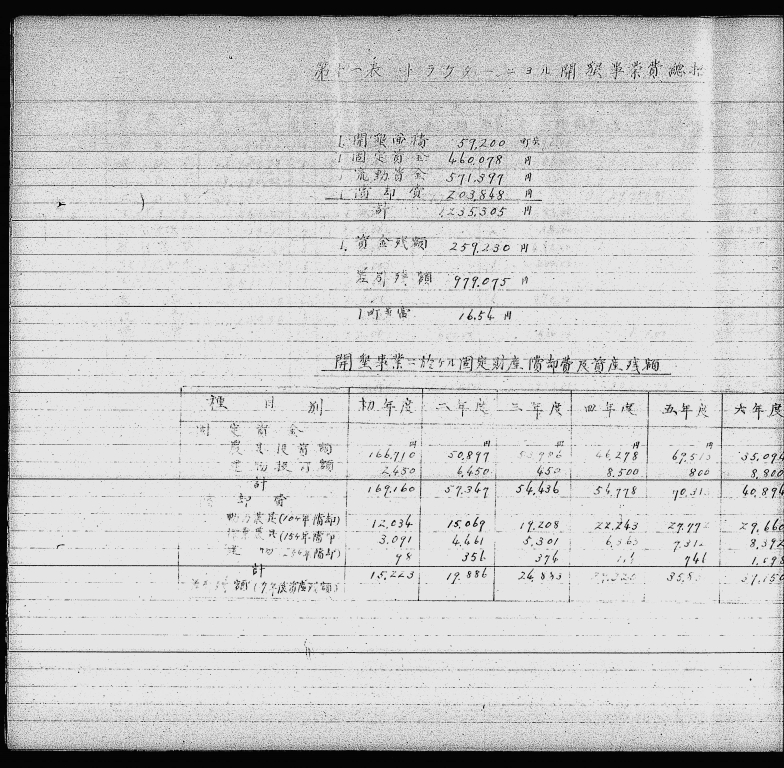 第十一表 トラクターニヨル開墾事業費総計
1. 開墾面積 59,200 町歩
1 固定資金 460,078 円
1 流動資金 571,397 円
1 償却費 203,848 円
計 1,235,305 円
1. 資金残額 259,230 円
差引残額 979,075 円
1町歩当 16.54 円
開墾事業ニ於ケル固定財産償却費及資産残額
種目別 初年度 二年度 三年度 四年度 五年度 六年度
固定資金
農具投資額 166,710 50,897 46,278 35,094
建物投資額 2,450 6,450 450 8,500 800 8,800
計 169,160 57,347 54,436 54,778 40,894
償却費
動力農具(10ケ年償却) 12,034 15,069 19,208 22,243 29,660
(15ケ年償却) 3,091 4,461 5,301 8,392
建物 98 356 376 746 1,098
計 15,223 19,886 24,885 39,150